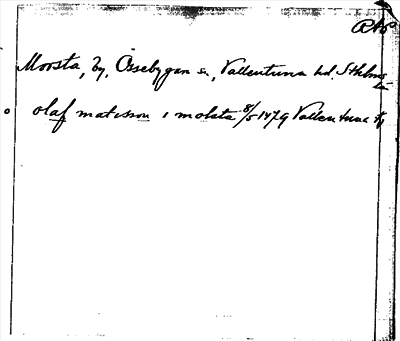 Morsta, by, Össebygarn sn, Vallentuna hd. Sthlms
olaf matisson i molsta 8/5 1479 Vallentuna